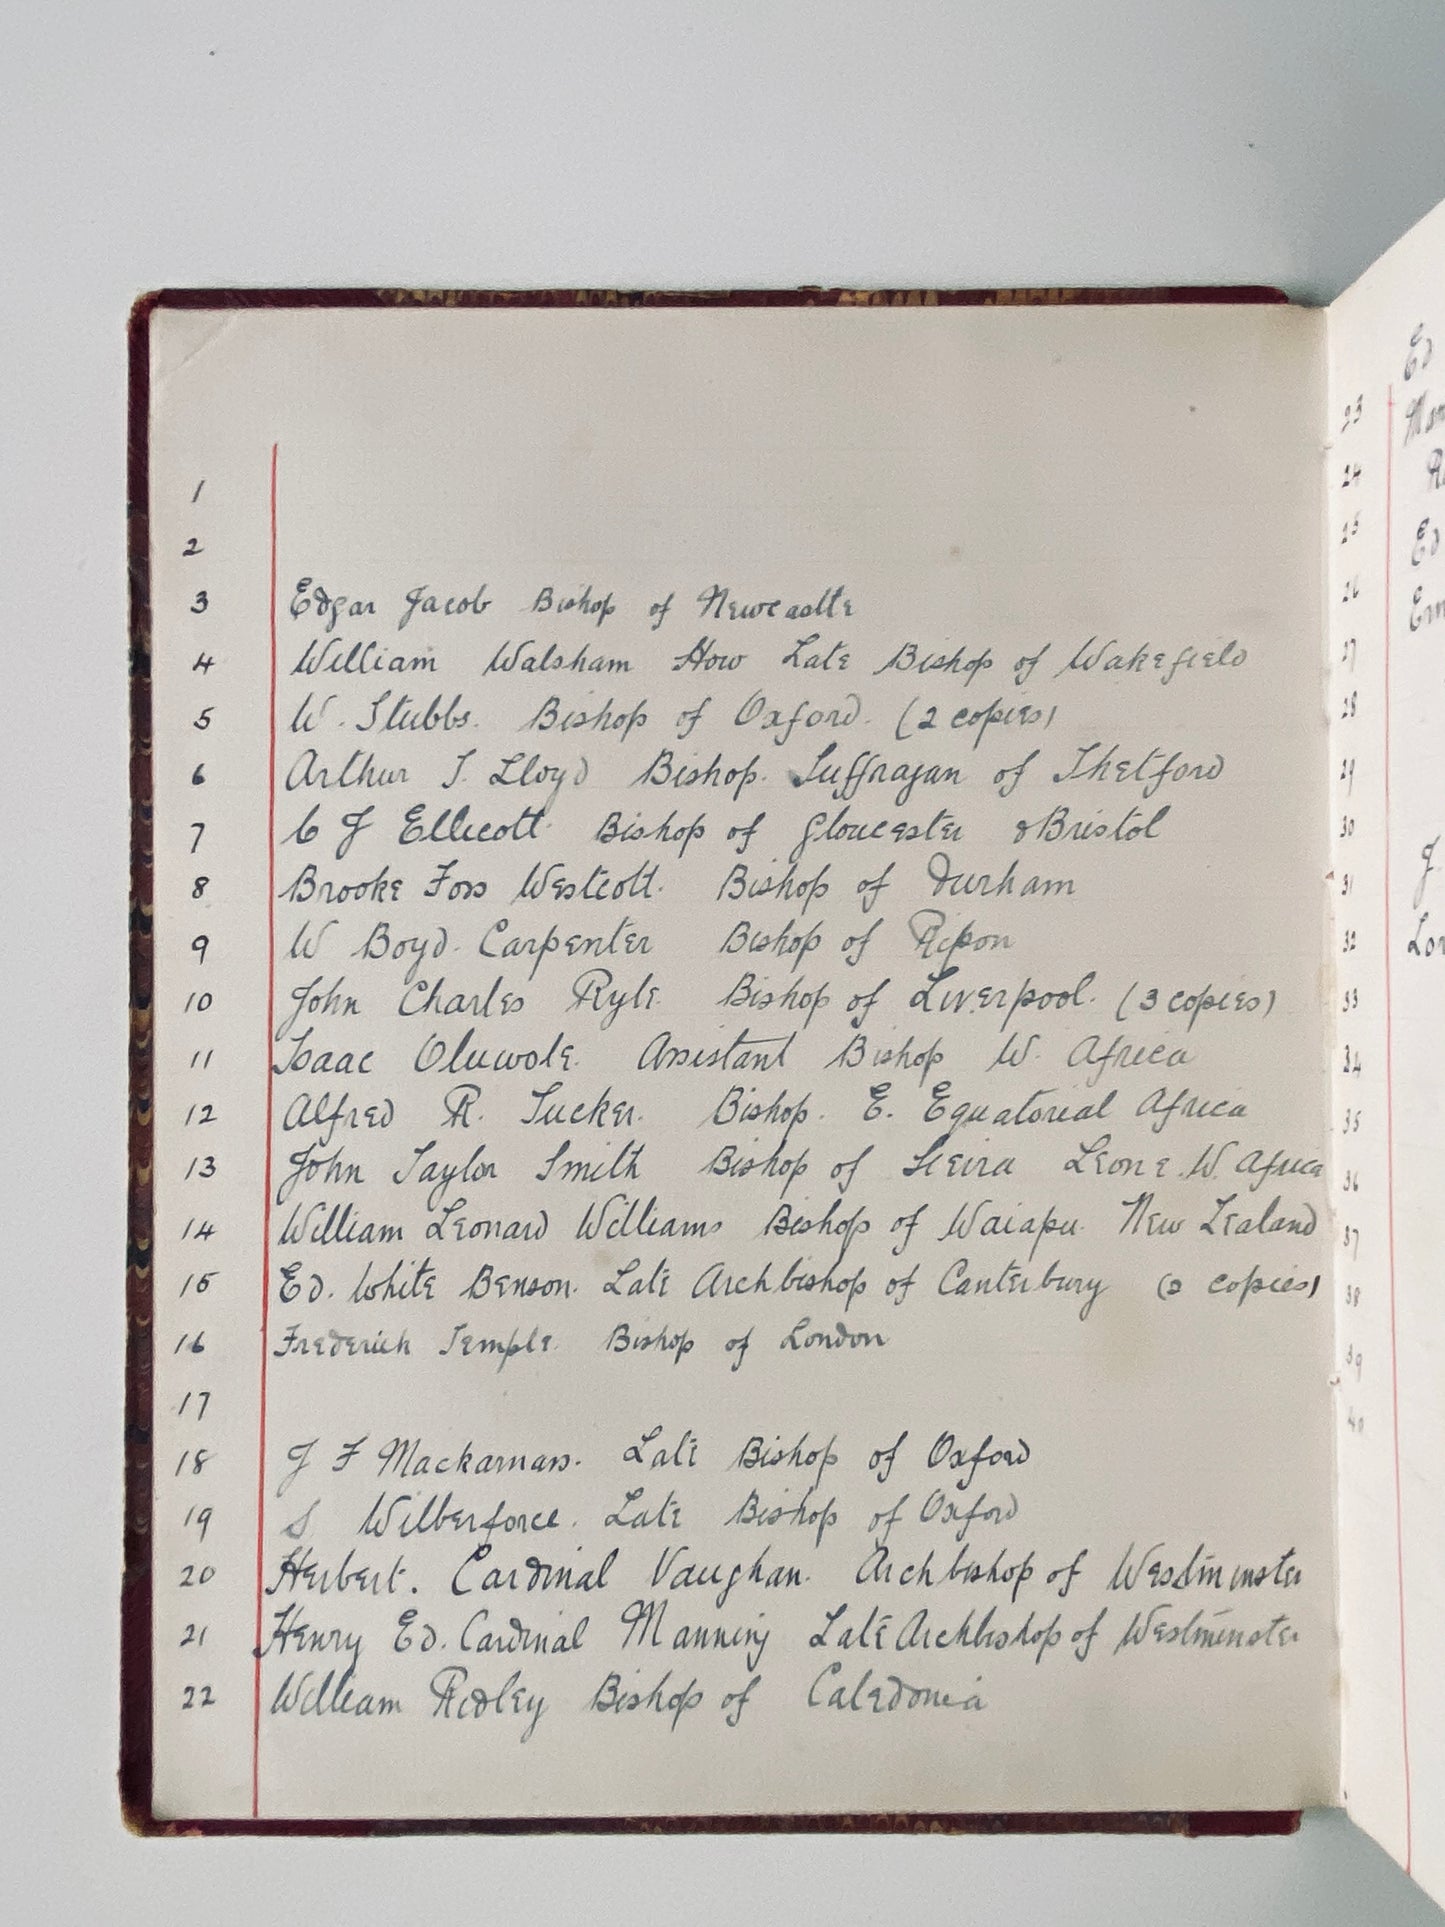 1
2
3 Edgar Jacob Bishop of Newcastle
4 William Walsham How Late Bishop of Wakefield
5 W. Stubbs. Bishop of Oxford. (2 copies)
6 Arthur T. Lloyd Bishop. Suffragan of Thetford
7 C J Ellicott. Bishop of Gloucester & Bristol
8 Brooke Foss Westcott. Bishop of Durham
9 W Boyd. Carpenter Bishop of Ripon
10 John Charles Ryle. Bishop of Liverpool. (3 copies)
11 Isaac Oluwole. Assistant Bishop W. Africa
12 Alfred R. Tucker. Bishop. E. Equatorial Africa
13 John Taylor Smith Bishop of Sieira Leone W. Africa
14 William Leonard Williams Bishop of Waiapu. New Zealand
15 Ed. White Benson. Late Archbishop of Canterbury (2 copies)
16 Frederich Temple. Bishop of London
17
18 J F Mackarnass. Late Bishop of Oxford
19 S Wilberforce. Late Bishop of Oxford
20 Herbert. Cardinal Vaughan. Archbishop of Westminster
21 Henry Ed. Cardinal Manning Late Archbishop of Westminster
22 William Ridley Bishop of Caledonia
Ed
23
24
25 Ed
26
27
28
29
30
31 J.
32
33
34
35
36
37
38
39
40